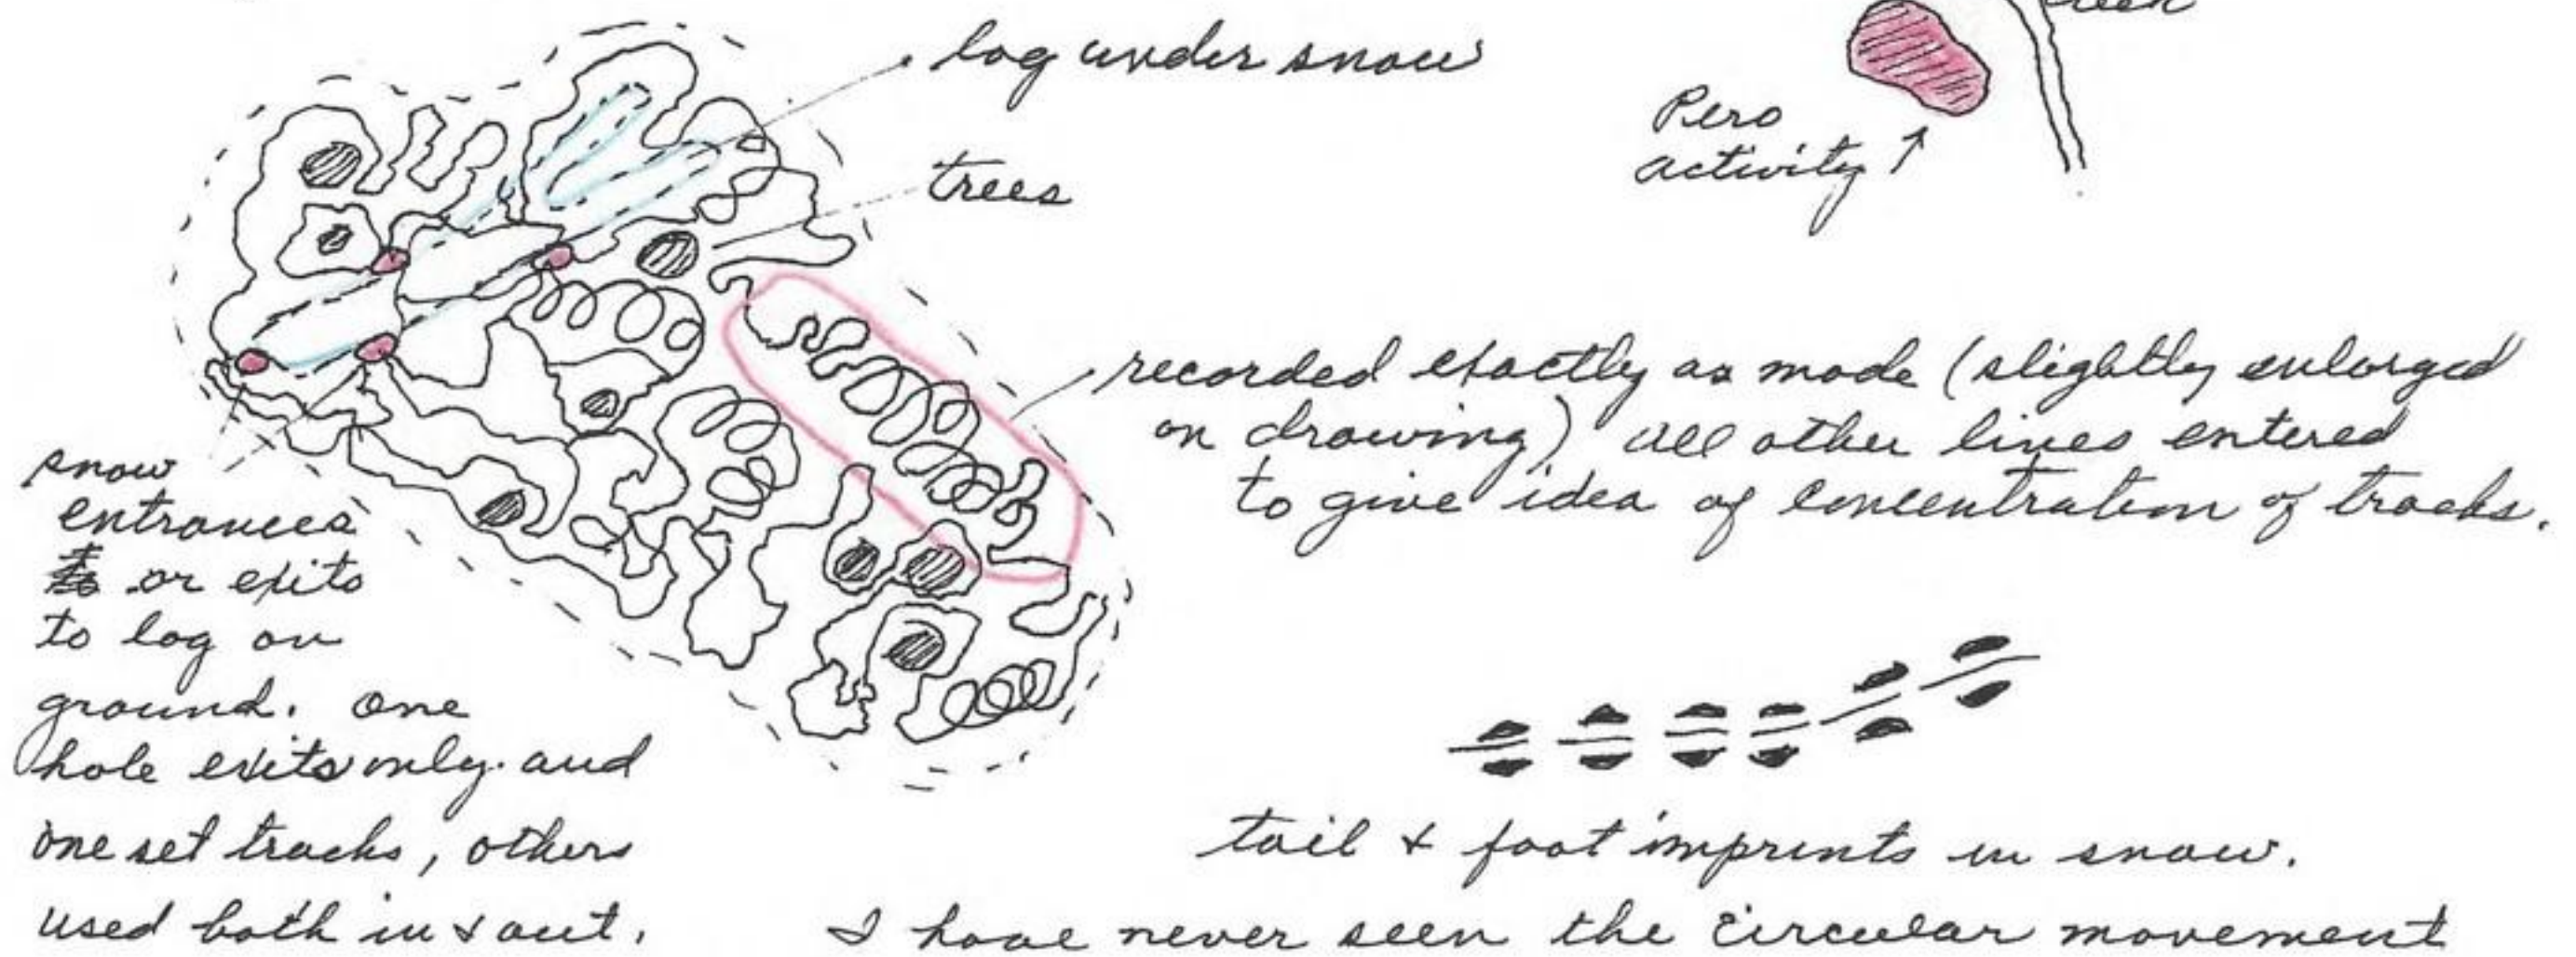 log under snow
Pero
activity ↑
trees
recorded exactly as made (slightly enlarged
on drawing) all other lines entered
to give idea of concentration of tracks.
snow
entrances
or exits
to log on
ground. One
hole exits only and
one set tracks, others
used both in & out.
tail & foot imprints in snow.
I have never seen the circular movement